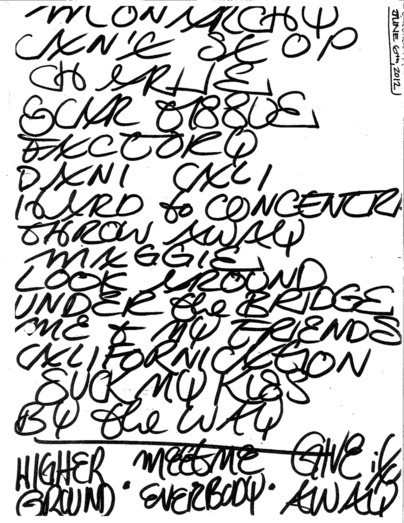 MONARCHY
CAN'T STOP
CHARLIE
SCAR TISSUE
FACTORY
DANI CALI
HARD to CONCENTR
THROW AWAY
MAGGIE
LOOK AROUND
UNDER the BRIDGE
ME & MY FRIENDS
CALIFORNICATION
SUCK MY KISS
BY the WAY
HIGHER MEET ME GIVE it
GROUND · EVERBODY · AWAY
JUNE 6th, 2012